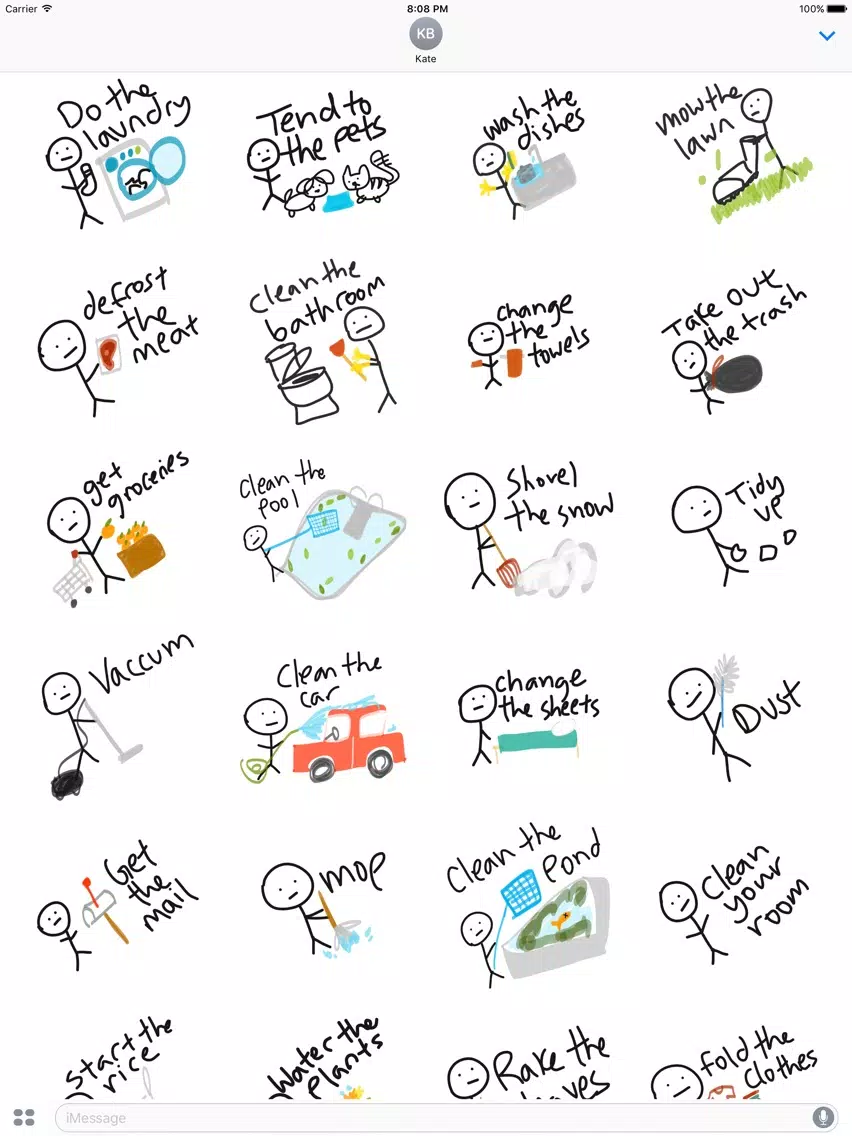 Carrier
8:08 PM
100%
KB
Kate
Do the
laundry
Tend to
the pets
wash the
dishes
mow the
lawn
defrost
the
meat
clean the
bathroom
change
the
towels
Take out
the trash
get
groceries
clean the
pool
Shovel
the snow
Tidy
up
Vaccum
Clean the
car
change
the sheets
Dust
Get
the
mail
mop
Clean the
Pond
Clean
your
room
start the
rice
Water the
plants
Rake the
leaves
fold the
clothes
iMessage